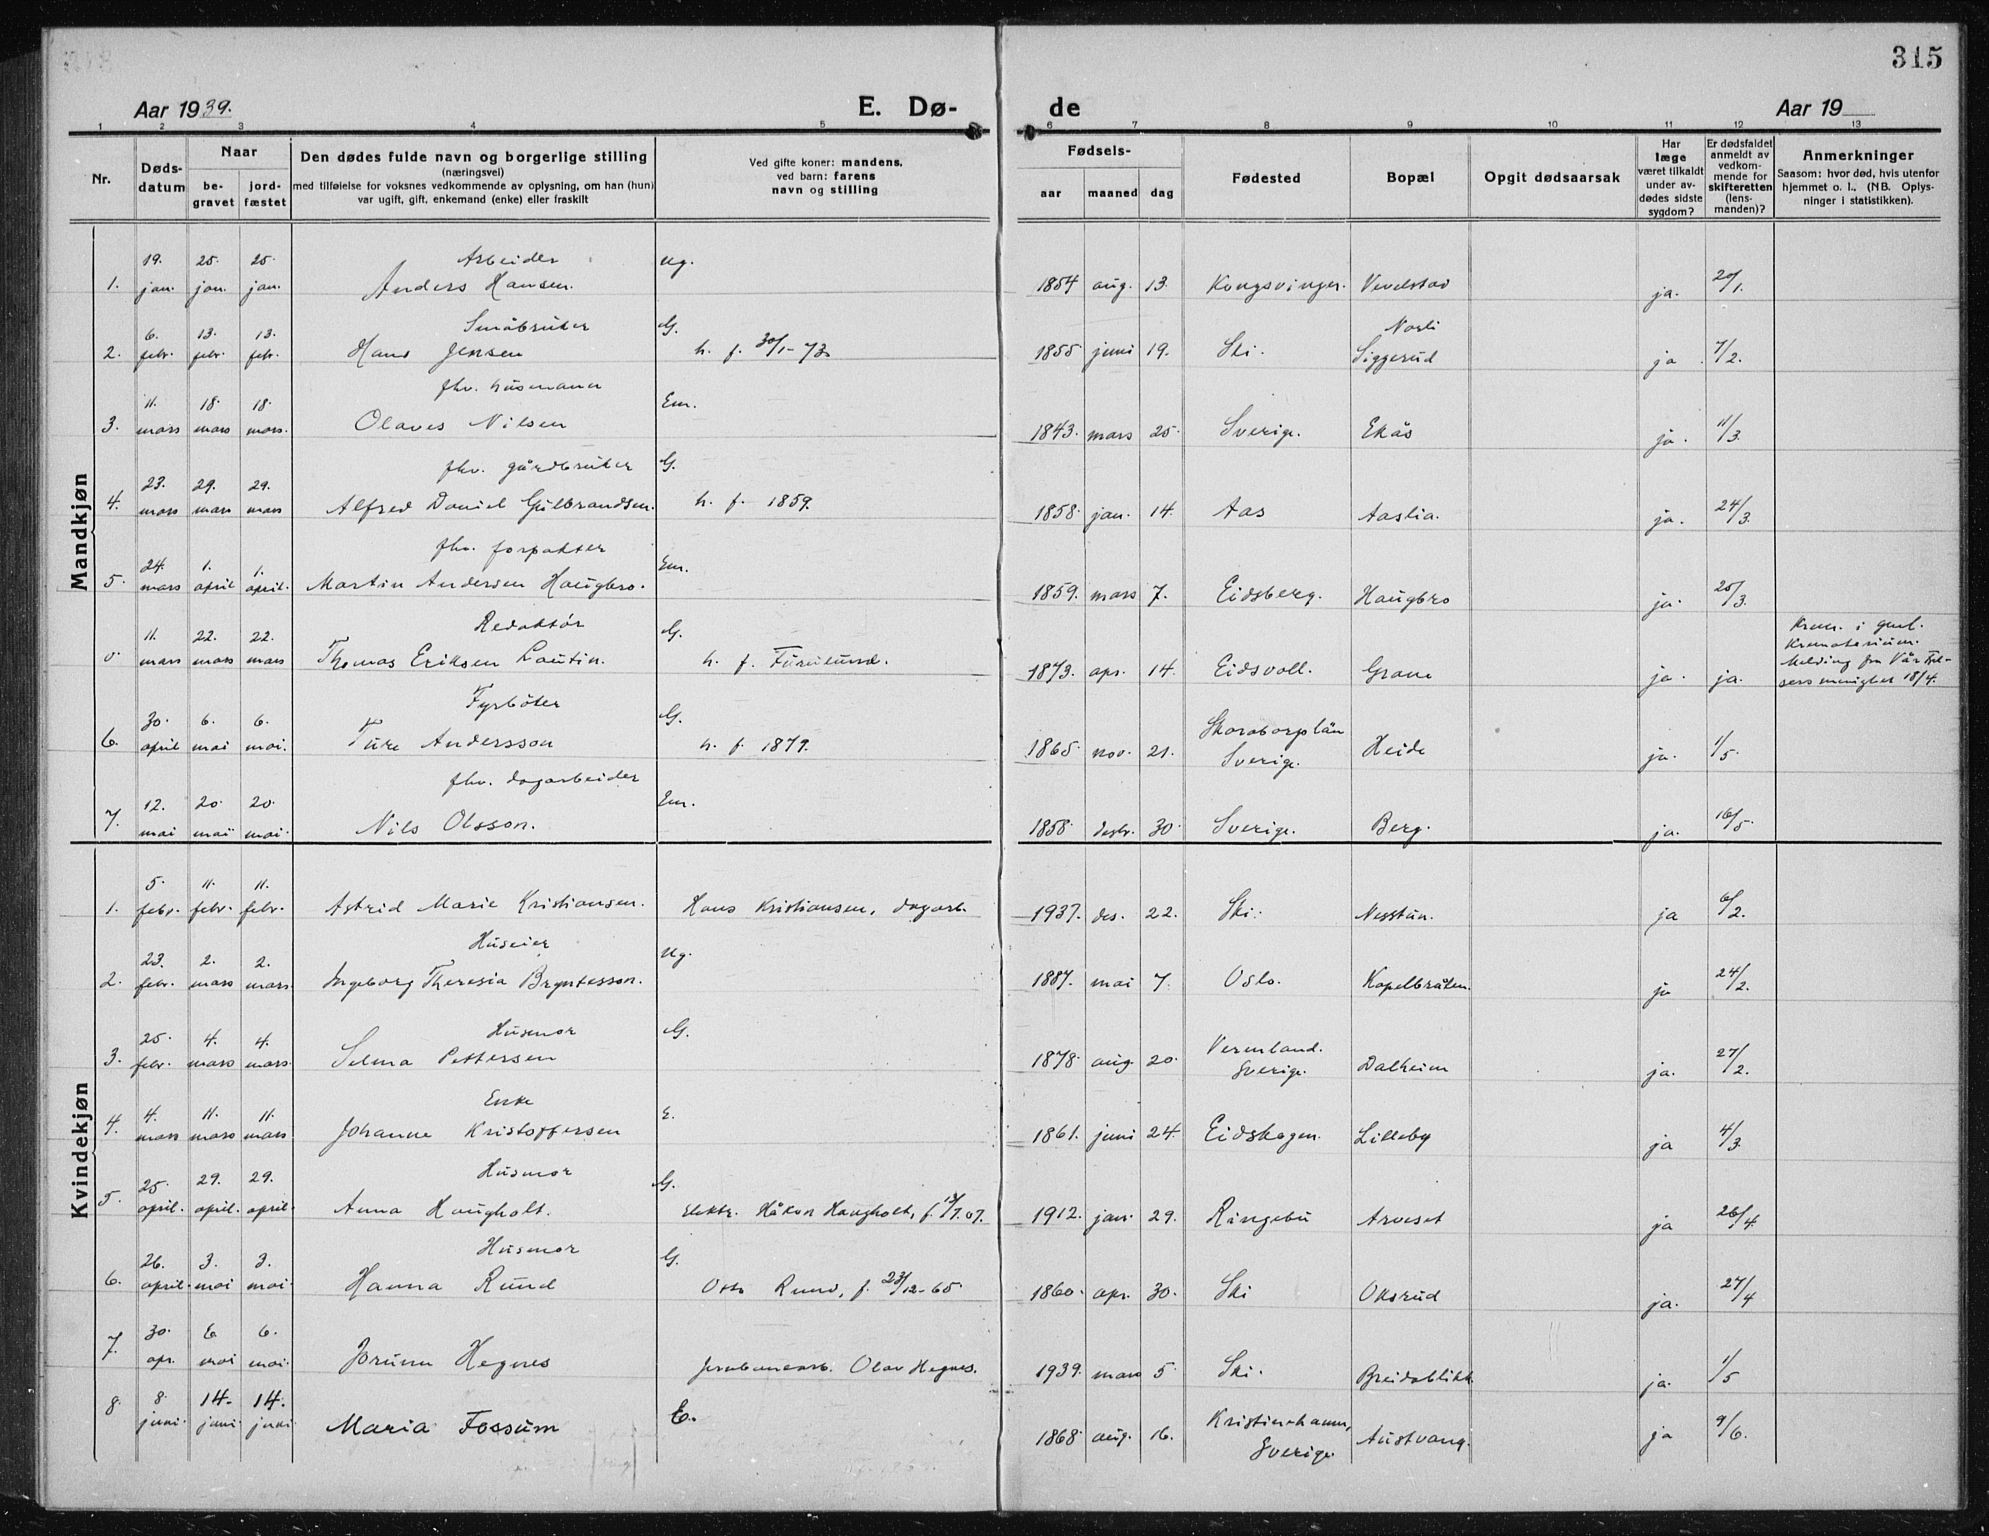 315
Aar 1939. E. Dø- de Aar 19
1 2 3 4 5 6 7 8 9 10 11 12 13
Nr. Døds-datum Naar be-gravet jord-fæstet
Den dødes fulde navn og borgerlige stilling
(næringsvei)
med tilføielse for voksnes vedkommende av oplysning, om han (hun)
var ugift, gift, enkemand (enke) eller fraskilt
Ved gifte koner: mandens,
ved barn: farens
navn og stilling
Fødsels- aar maaned dag
Fødested
Bopæl
Opgit dødsaarsak
Har læge været tilkaldt under av-dødes sidste sygdom?
Er dødsfaldet anmeldt av vedkom-mende for skifteretten (lens-manden)?
Anmerkninger
Saasom: hvor død, hvis utenfor hjemmet o. l., (NB. Oplys-ninger i statistikken).
Mandkjøn
19. 25. 25. Arbeider ug.
1. jan. jan. jan. Anders Hansen. 1854 aug. 13. Kongsvinger. Vevelstad ja. 20/1.
6. 13. 13. Småbruker G. Norli
2. febr. febr. febr. Hans Jensen h. f. 30/1-73 1855 juni 19. Ski. Siggerud ja 7/2.
11. 18. 18. fhv. husmann Em.
3. mars mars mars. Olaves Nilsen 1843. mars 25. Sverige. Ekås ja. 11/3.
23. 29. 29. fhv. gårdbruker G.
4. mars mars mars Alfred Daniel Gulbrandsen. h. f. 1859. 1858. jan. 14. Aas Aaslia. ja. 24/3.
24. 1. 1. fhv. forpakter Em.
5. mars april april. Martin Andersen Haugbro. 1859. mars 7. Eidsberg. Haugbro ja. 25/3.
11. 22. 22. Redaktør G. Krem. i gml. Krematorium. Melding fra Vår Frel-sers menighet 18/4.
0. mars mars mars Thomas Eriksen Lautin. h. f. Furulund. 1873. apr. 14. Eidsvoll. Gran ja. ja.
30. 6. 6. Fyrbøter G. Skaraborgslän
6. april mai mai. Ture Andersson h. f. 1879. 1865. nov. 21. Sverige. Heide ja. 1/5.
12. 20. 20. fhv. dagarbeider Em.
7. mai mai mai. Nils Olsson. 1858. desbr. 30. Sverige. Berg. ja. 16/5.
Kvindekjøn
5. 11. 11.
1. febr. febr. febr. Astrid Marie Kristiansen. Hans Kristiansen, dagarb. 1937. des. 22. Ski. Nesstun. ja 6/2.
23. 2. 2. Huseier ug.
2. febr. mars mars. Ingeborg Theresia Bryntesson. 1887. mai 7. Oslo. Kapelbråten. ja 24/2.
25. 4. 4. Husmor G. Vermland.
3. febr. mars mars. Selma Pettersen 1878. aug. 20. Sverige. Dalheim ja. 27/2.
4. 11. 11. Enke E.
4. mars mars mars Johanne Kristoffersen 1861. juni 24. Eidskogen. Lilleby ja 4/3.
25. 29. 29. Husmor G.
5. april. april. april. Anna Haugholt. Elektr. Håkon Haugholt, f. 13/7.07. 1912. jan. 29. Ringebu Arveset ja 26/4.
26. 3. 3. Husmor G.
6. april. mai mai. Hanna Rund Otto Rund, f. 23/12-65. 1860. apr. 30. Ski Oksrud ja. 27/4
30. 6 6.
7. apr. mai mai. Jorunn Hegnes Jernbanearb. Olav Hegnes. 1939. mars 5. Ski. Breidablikk. ja. 1/5
8. 14. 14. E. Kristinehamn,
8. juni. juni. juni Maria Fossum 1868. aug. 16. Sverige. Austvang. ja 9/6.